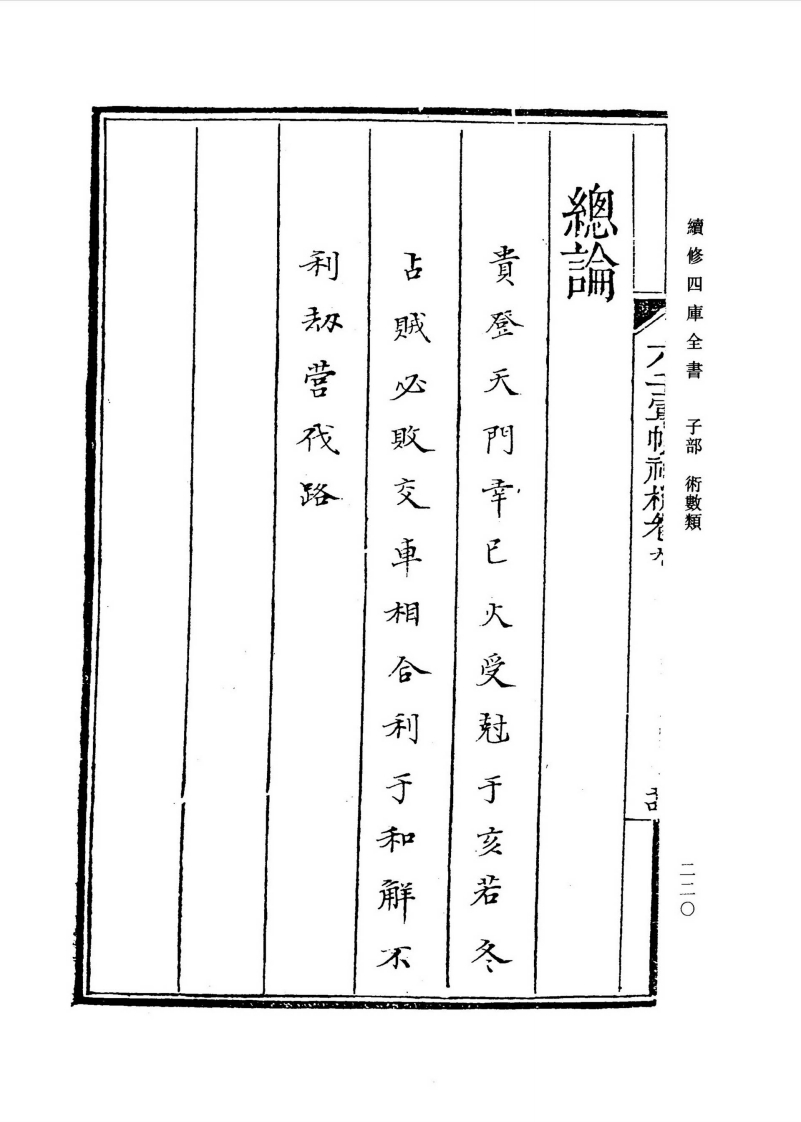 續修四庫全書 子部 術數類
二二〇
總論
貴登天門幸巳火受尅于亥若冬
占賊必敗交車相合利于和解不
利刼營伐路